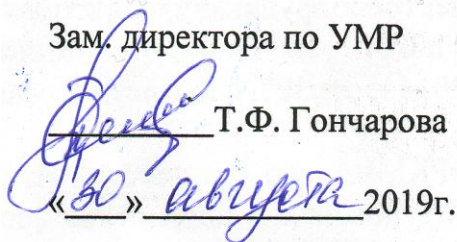 Зам. директора по УМР
Т.Ф. Гончарова
«30» августа 2019г.